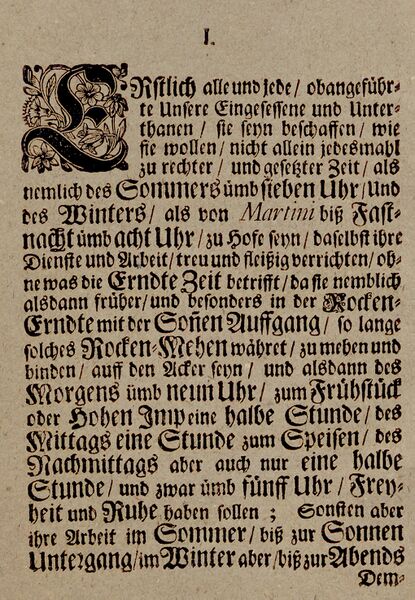 I.
ERstlich alle und jede / obangeführ-
te Unsere Eingesessene und Unter-
thanen / sie seyn beschaffen / wie
sie wollen / nicht allein jedesmahl
zu rechter / und gesetzter Zeit / als
nemlich des Sommers ümb sieben Uhr / Und
des Winters / als von Martini biß Fast-
nacht ümb acht Uhr / zu Hofe seyn / daselbst ihre
Dienste und Arbeit / treu und fleißig verrichten / oh-
ne was die Erndte Zeit betrifft / da sie nemblich
alsdann früher / und besonders in der Rocken-
Erndte mit der Soñen Auffgang / so lange
solches Rocken-Mehen währet / zu mehen und
binden / auff den Acker seyn / und alsdann des
Morgens ümb neun Uhr / zum Frühstück
oder Hohen Imp eine halbe Stunde / des
Mittags eine Stunde zum Speisen / des
Nachmittags aber auch nur eine halbe
Stunde / und zwar ümb fünff Uhr / Frey-
heit und Ruhe haben sollen ; Sonsten aber
ihre Arbeit im Sommer / biß zur Sonnen
Untergang / im Winter aber / biß zur Abends
Dem-